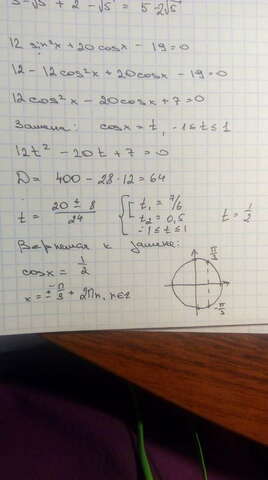 3-√5 + 2-√5 = 5-2√5
12 sin²x + 20cosx - 19 = 0
12 - 12cos²x + 20cosx - 19 = 0
12cos²x - 20cosx + 7 = 0
Замена: cosx = t, -1 ≤ t ≤ 1
12t² - 20t + 7 = 0
D = 400 - 28·12 = 64
t = (20 ± 8)/24 { [ t₁ = 7/6 t = 1/2
t₂ = 0,5
-1 ≤ t ≤ 1
Вернемся к замене:
cosx = 1/2
x = ± π/3 + 2πn, n∈Z
π/3
-π/3